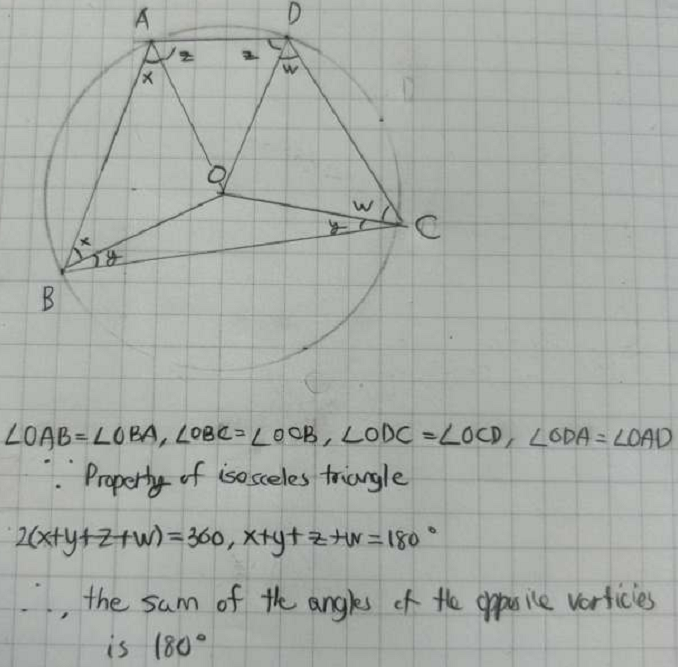 A
D
z
z
x
w
O
w
y
C
x
y
B
∠OAB=∠OBA, ∠OBC=∠OCB, ∠ODC=∠OCD, ∠ODA=∠OAD
∵ Property of isosceles triangle
2(x+y+z+w)=360, x+y+z+w=180°
∴, the sum of the angles of the opposite vorticies
is 180°